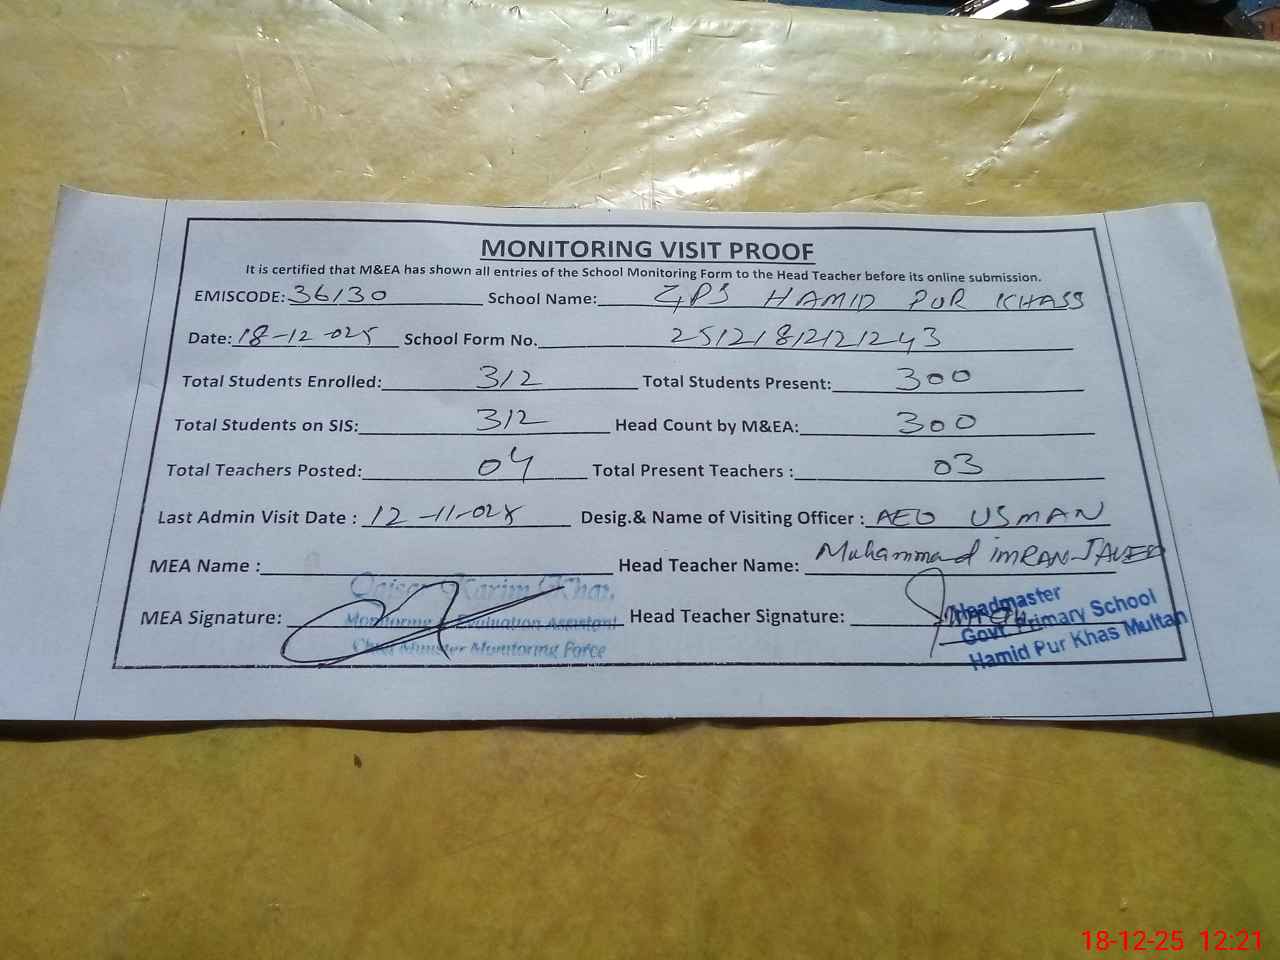 MONITORING VISIT PROOF
It is certified that M&EA has shown all entries of the School Monitoring Form to the Head Teacher before its online submission.
EMISCODE: 36130 School Name: GPS HAMID PUR KHASS
Date: 18-12-025 School Form No. 251218121243
Total Students Enrolled: 312 Total Students Present: 300
Total Students on SIS: 312 Head Count by M&EA: 300
Total Teachers Posted: 04 Total Present Teachers : 03
Last Admin Visit Date : 12-11-025 Desig.& Name of Visiting Officer : AEO USMAN
MEA Name : Head Teacher Name: Muhammad IMRAN JAVED
Qaiser Karim Khar,
MEA Signature: Head Teacher Signature:
Monitoring & Evaluation Assistant
Chief Minister Monitoring Force
Headmaster
Govt. Primary School
Hamid Pur Khas Multan
18-12-25 12:21